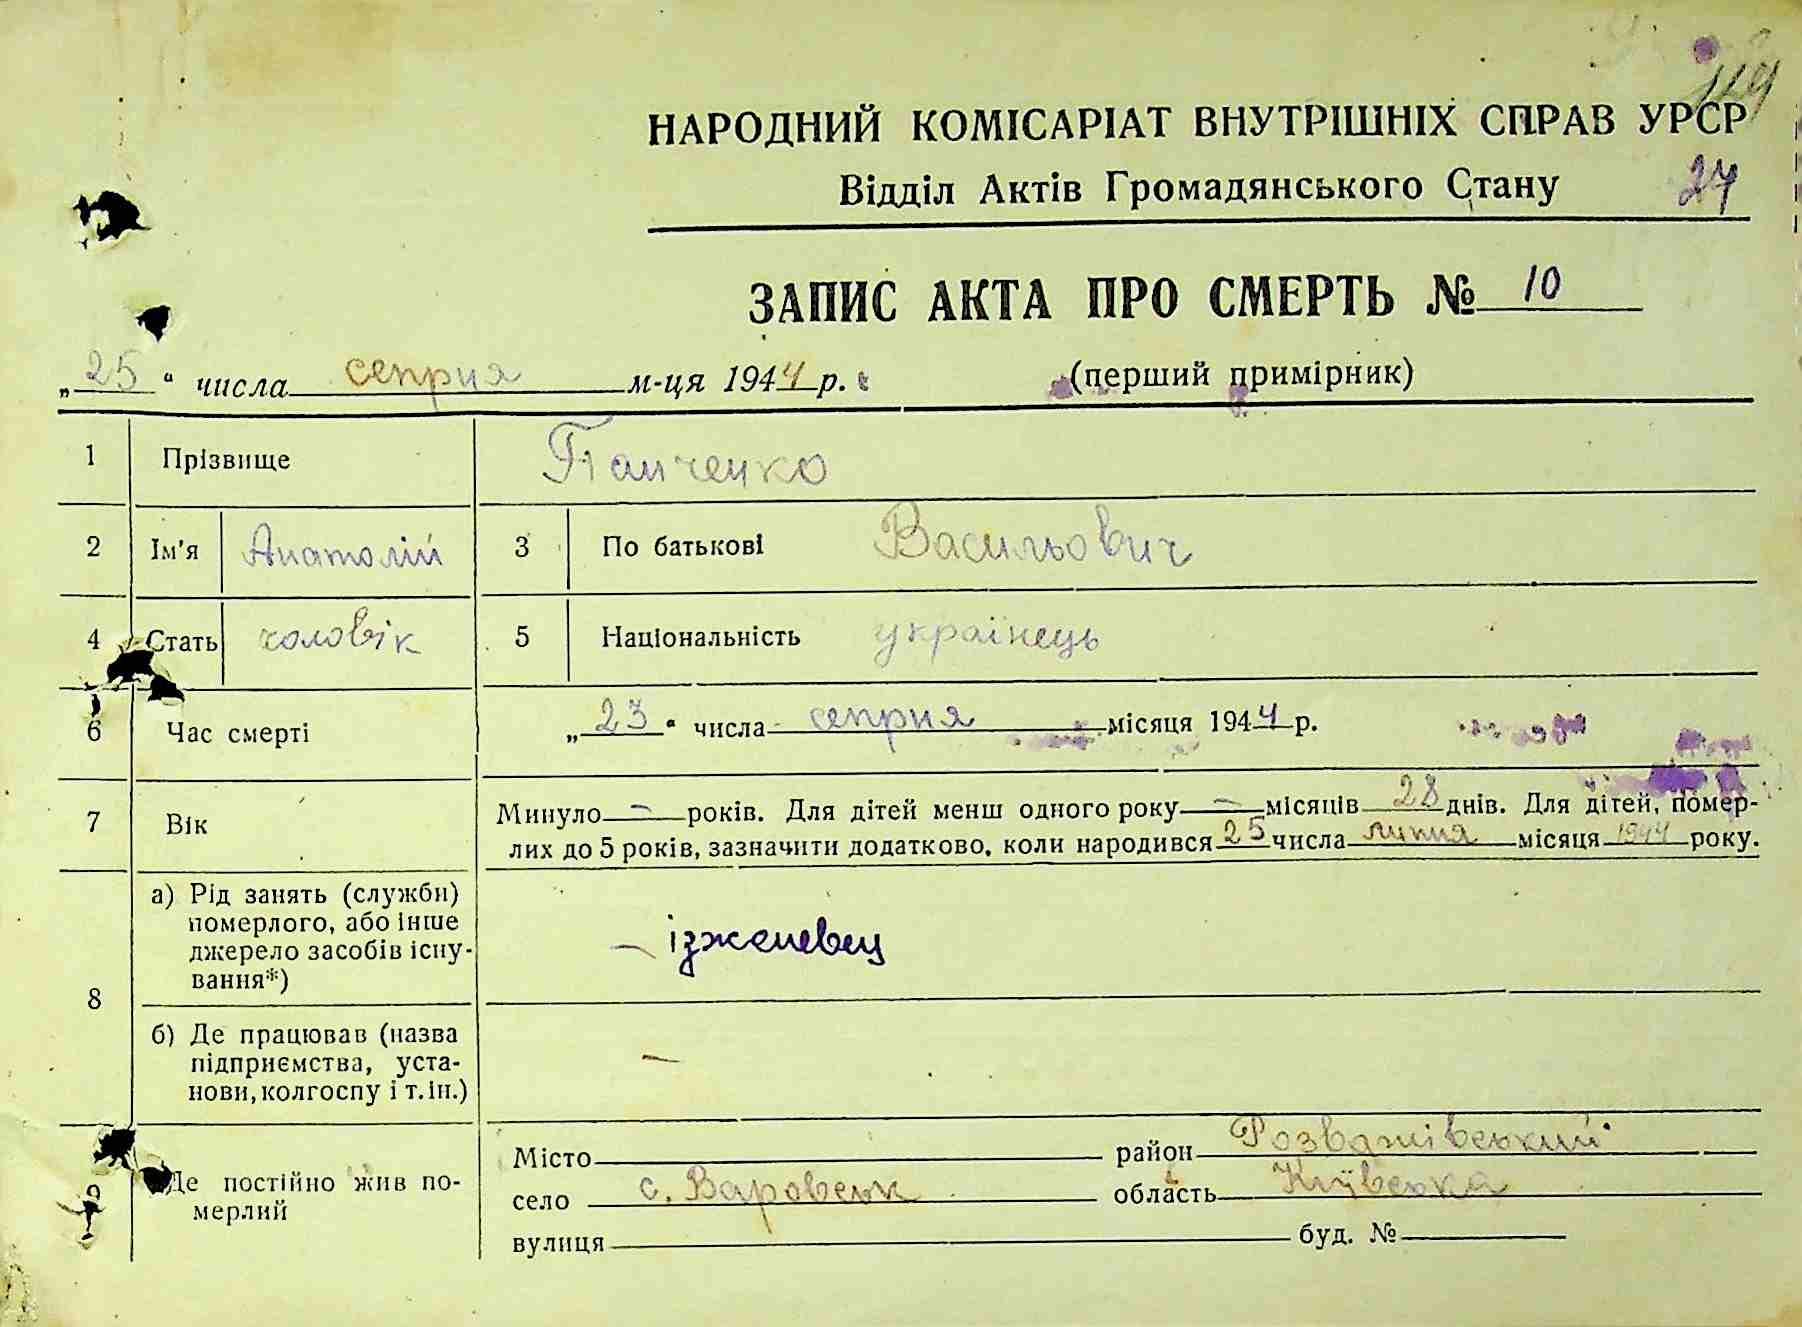 119
НАРОДНИЙ КОМІСАРІАТ ВНУТРІШНІХ СПРАВ УРСР
Відділ Актів Громадянського Стану 27
ЗАПИС АКТА ПРО СМЕРТЬ № 10
„25“ числа серпня м-ця 1944 р. (перший примірник)
1 Прізвище Панченко
2 Ім'я Анатолій 3 По батькові Васильович
4 Стать чоловік 5 Національність українець
6 Час смерті „23“ числа серпня місяця 1944 р.
7 Вік Минуло — років. Для дітей менш одного року — місяців 28 днів. Для дітей, помер-
лих до 5 років, зазначити додатково, коли народився 25 числа липня місяця 1944 року.
8 а) Рід занять (служби)
померлого, або інше
джерело засобів існу-
вання*) — іждеивец
б) Де працював (назва
підприємства, уста-
нови, колгоспу і т. ін.) —
Де постійно жив по-
мерлий
Місто район Розважівський
село с. Варовськ область Київська
вулиця буд. №